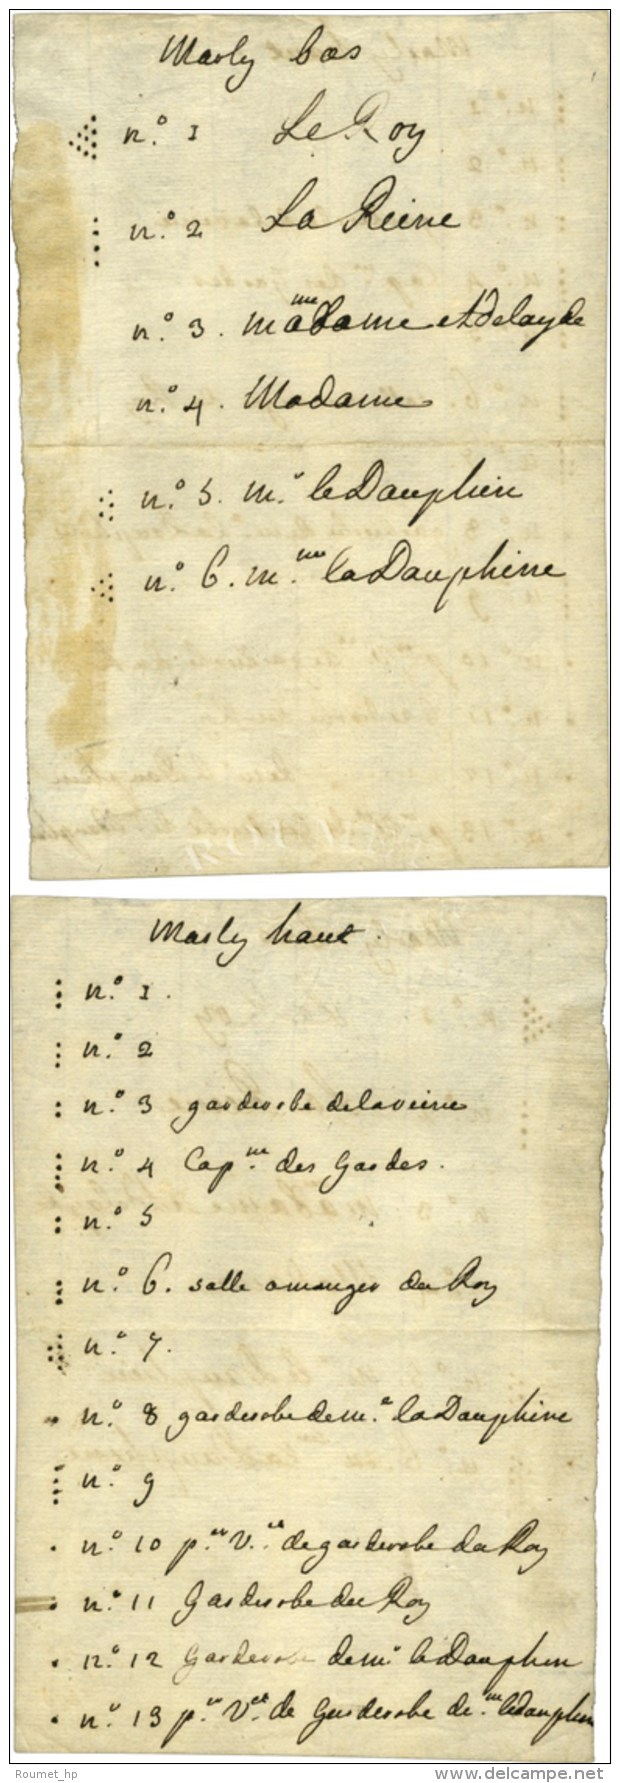 Marly bas
n.° 1 Le Roy
n.° 2 La Reine
n.° 3. mme madame Adelayde
n.° 4. Madame
n.° 5. m.r le Dauphin
n.° 6. m.me la Dauphine
Marly haut.
n.° 1.
n.° 2
n.° 3 garderobe delareine
n.° 4 Cap.ne des Gardes.
n.° 5
n.° 6. salle amanger du Roy
n.° 7.
n.° 8 garderobe de m.e la Dauphine
n.° 9
n.° 10 p.er V.et de garderobe du Roy
n.° 11 Garderobe du Roy
n.° 12 Garderobe de mr le Dauphin
n.° 13 p.er V.et de Garderobe de le dauphin
Roumet_hp
delcampe.net